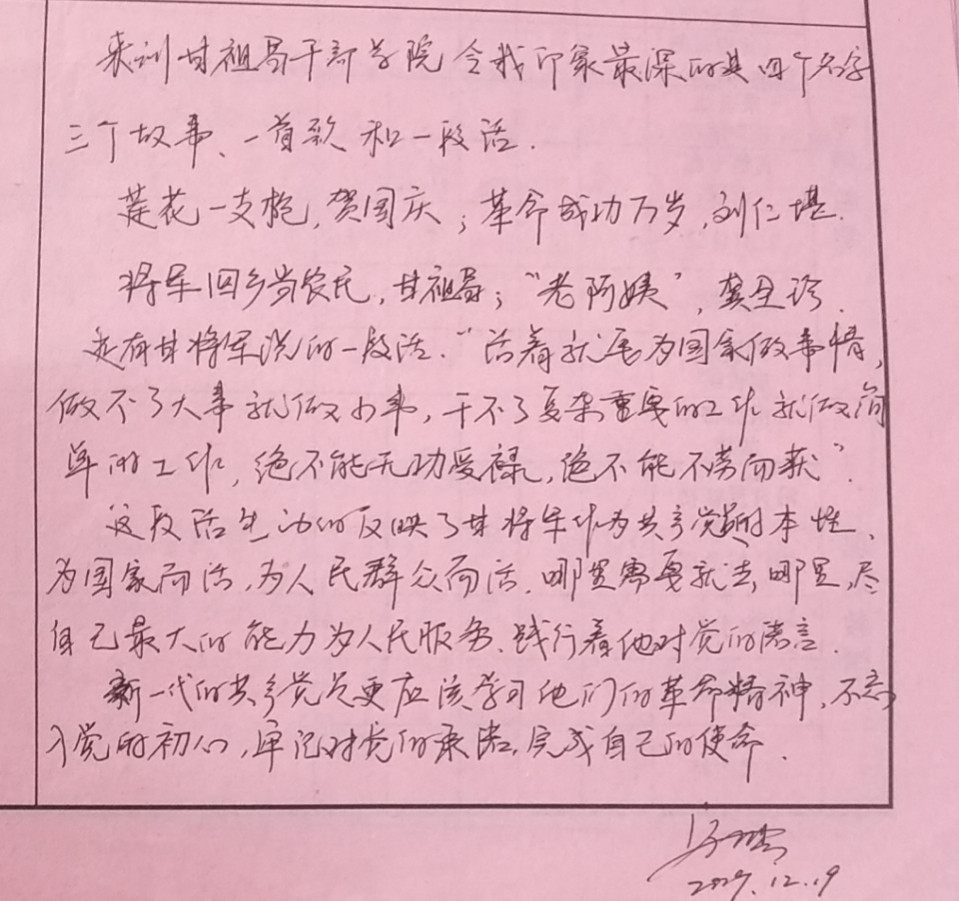 来到甘祖昌干部学院令我印象最深的是四个名字
三个故事、一首歌和一段话.
莲花一支枪,贺国庆;革命成功万岁,刘仁堪.
将军回乡当农民,甘祖昌;“老阿姨”,龚全珍.
还有甘将军说的一段话.“活着就要为国家做事情,
做不了大事就做小事,干不了复杂重要的工作就做简
单的工作,绝不能无功受禄,绝不能不劳而获”.
这段话生动的反映了甘将军作为共产党员的本性,
为国家而活,为人民群众而活.哪里需要就去哪里,尽
自己最大的能力为人民服务.践行着他对党的诺言.
新一代的共产党员更应该学习他们的革命精神,不忘
入党的初心,牢记对党的承诺,完成自己的使命.
12.19